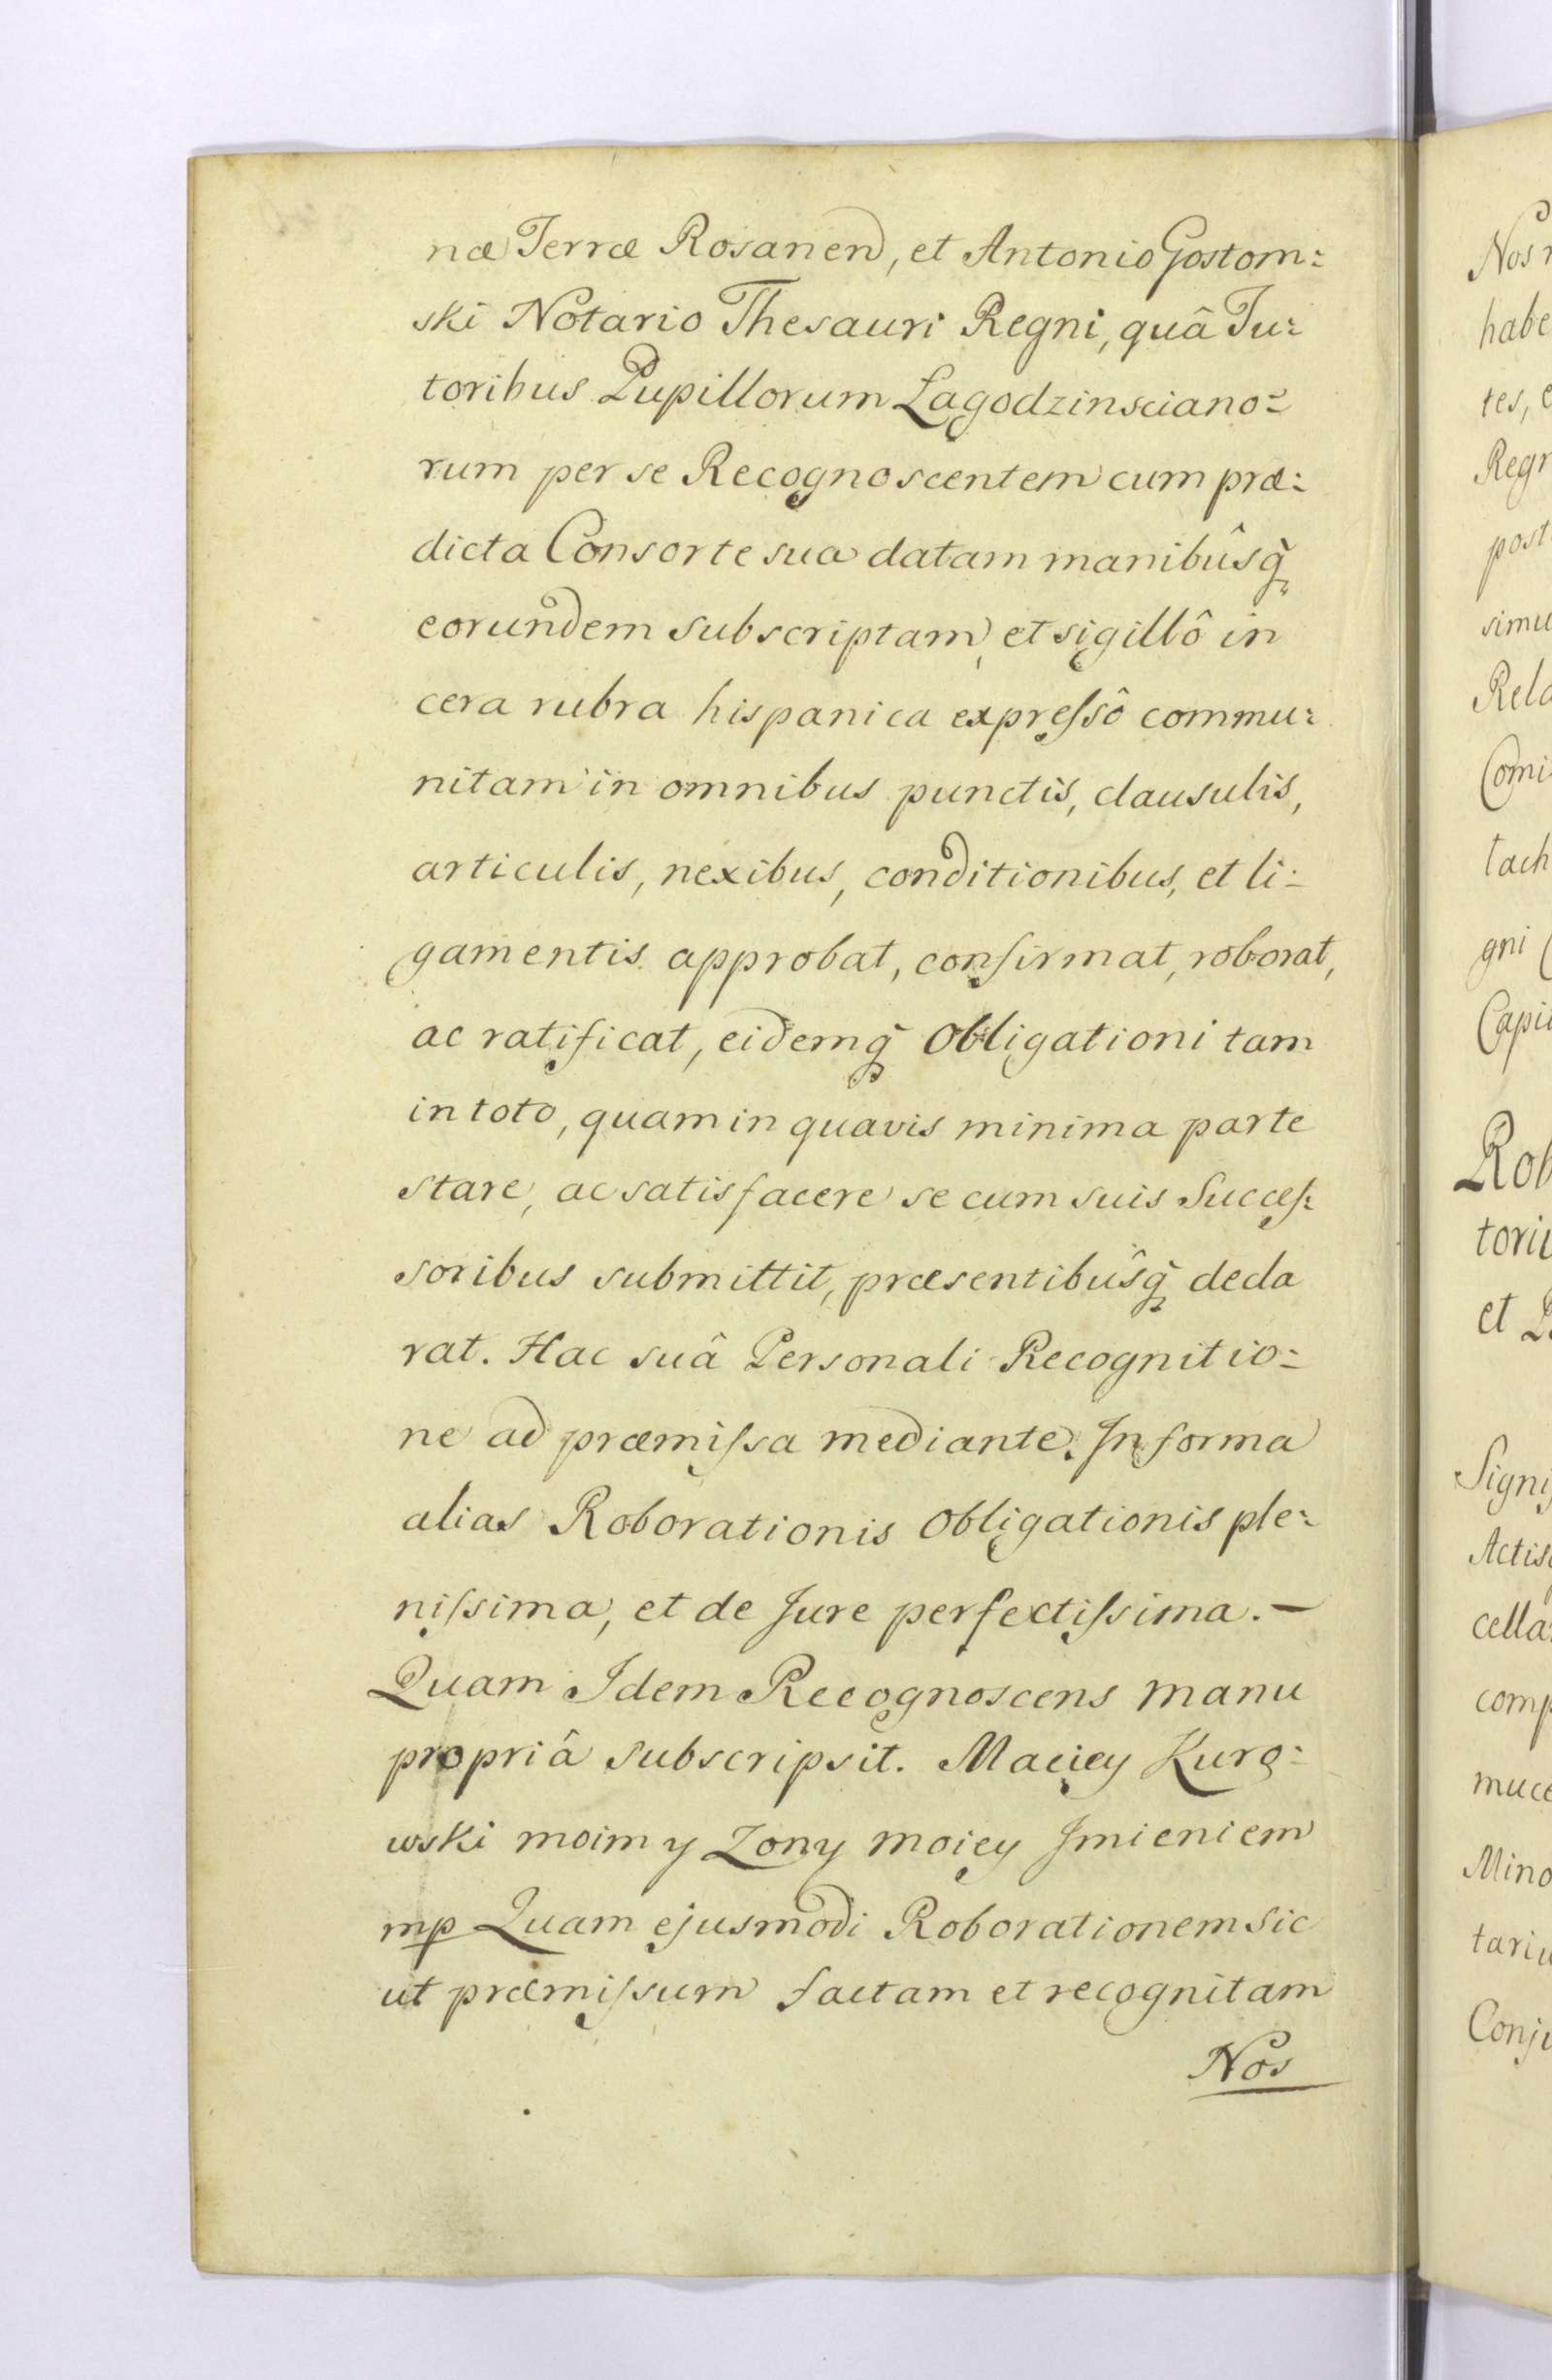 næ Terræ Rosanen, et Antonio Gostom:
ski Notario Thesauri Regni, quâ Tu:
toribus Pupillorum Łagodzinsciano:
rum per se Recognoscentem cum præ:
dicta Consorte sua datam manibûsq̀
eorundem subscriptam, et sigillô in
cera rubra hispanica expreſsô commu:
nitam in omnibus punctis, clausulis,
articulis, nexibus, conditionibus, et li:
gamentis approbat, confirmat, roborat,
ac ratificat, eidemq̀ Obligationi tam
in toto, quam in quavis minima parte
stare, ac satisfacere se cum suis Succeſ:
soribus submittit, præsentibûsq̀ decla
rat. Hac suâ Personali Recognitio:
ne ad præmiſsa mediante. In forma
alias Roborationis Obligationis ple:
niſsima, et de Jure perfectiſsima. —
Quam Idem Recognoscens manu
propriâ subscripsit. Maciey Kuro:
wski moim y Zony moiey Jmieniem
mp Quam ejusmodi Roborationem sic
ut præmiſsum factam et recognitam
Nos
Nos
habe
tes,
Regn
post
simu
Rela
Comi
tach
gni
Capi
Rob
torii
et
Signi
Actis
cella
comp
muce
Mino
tariu
Conju